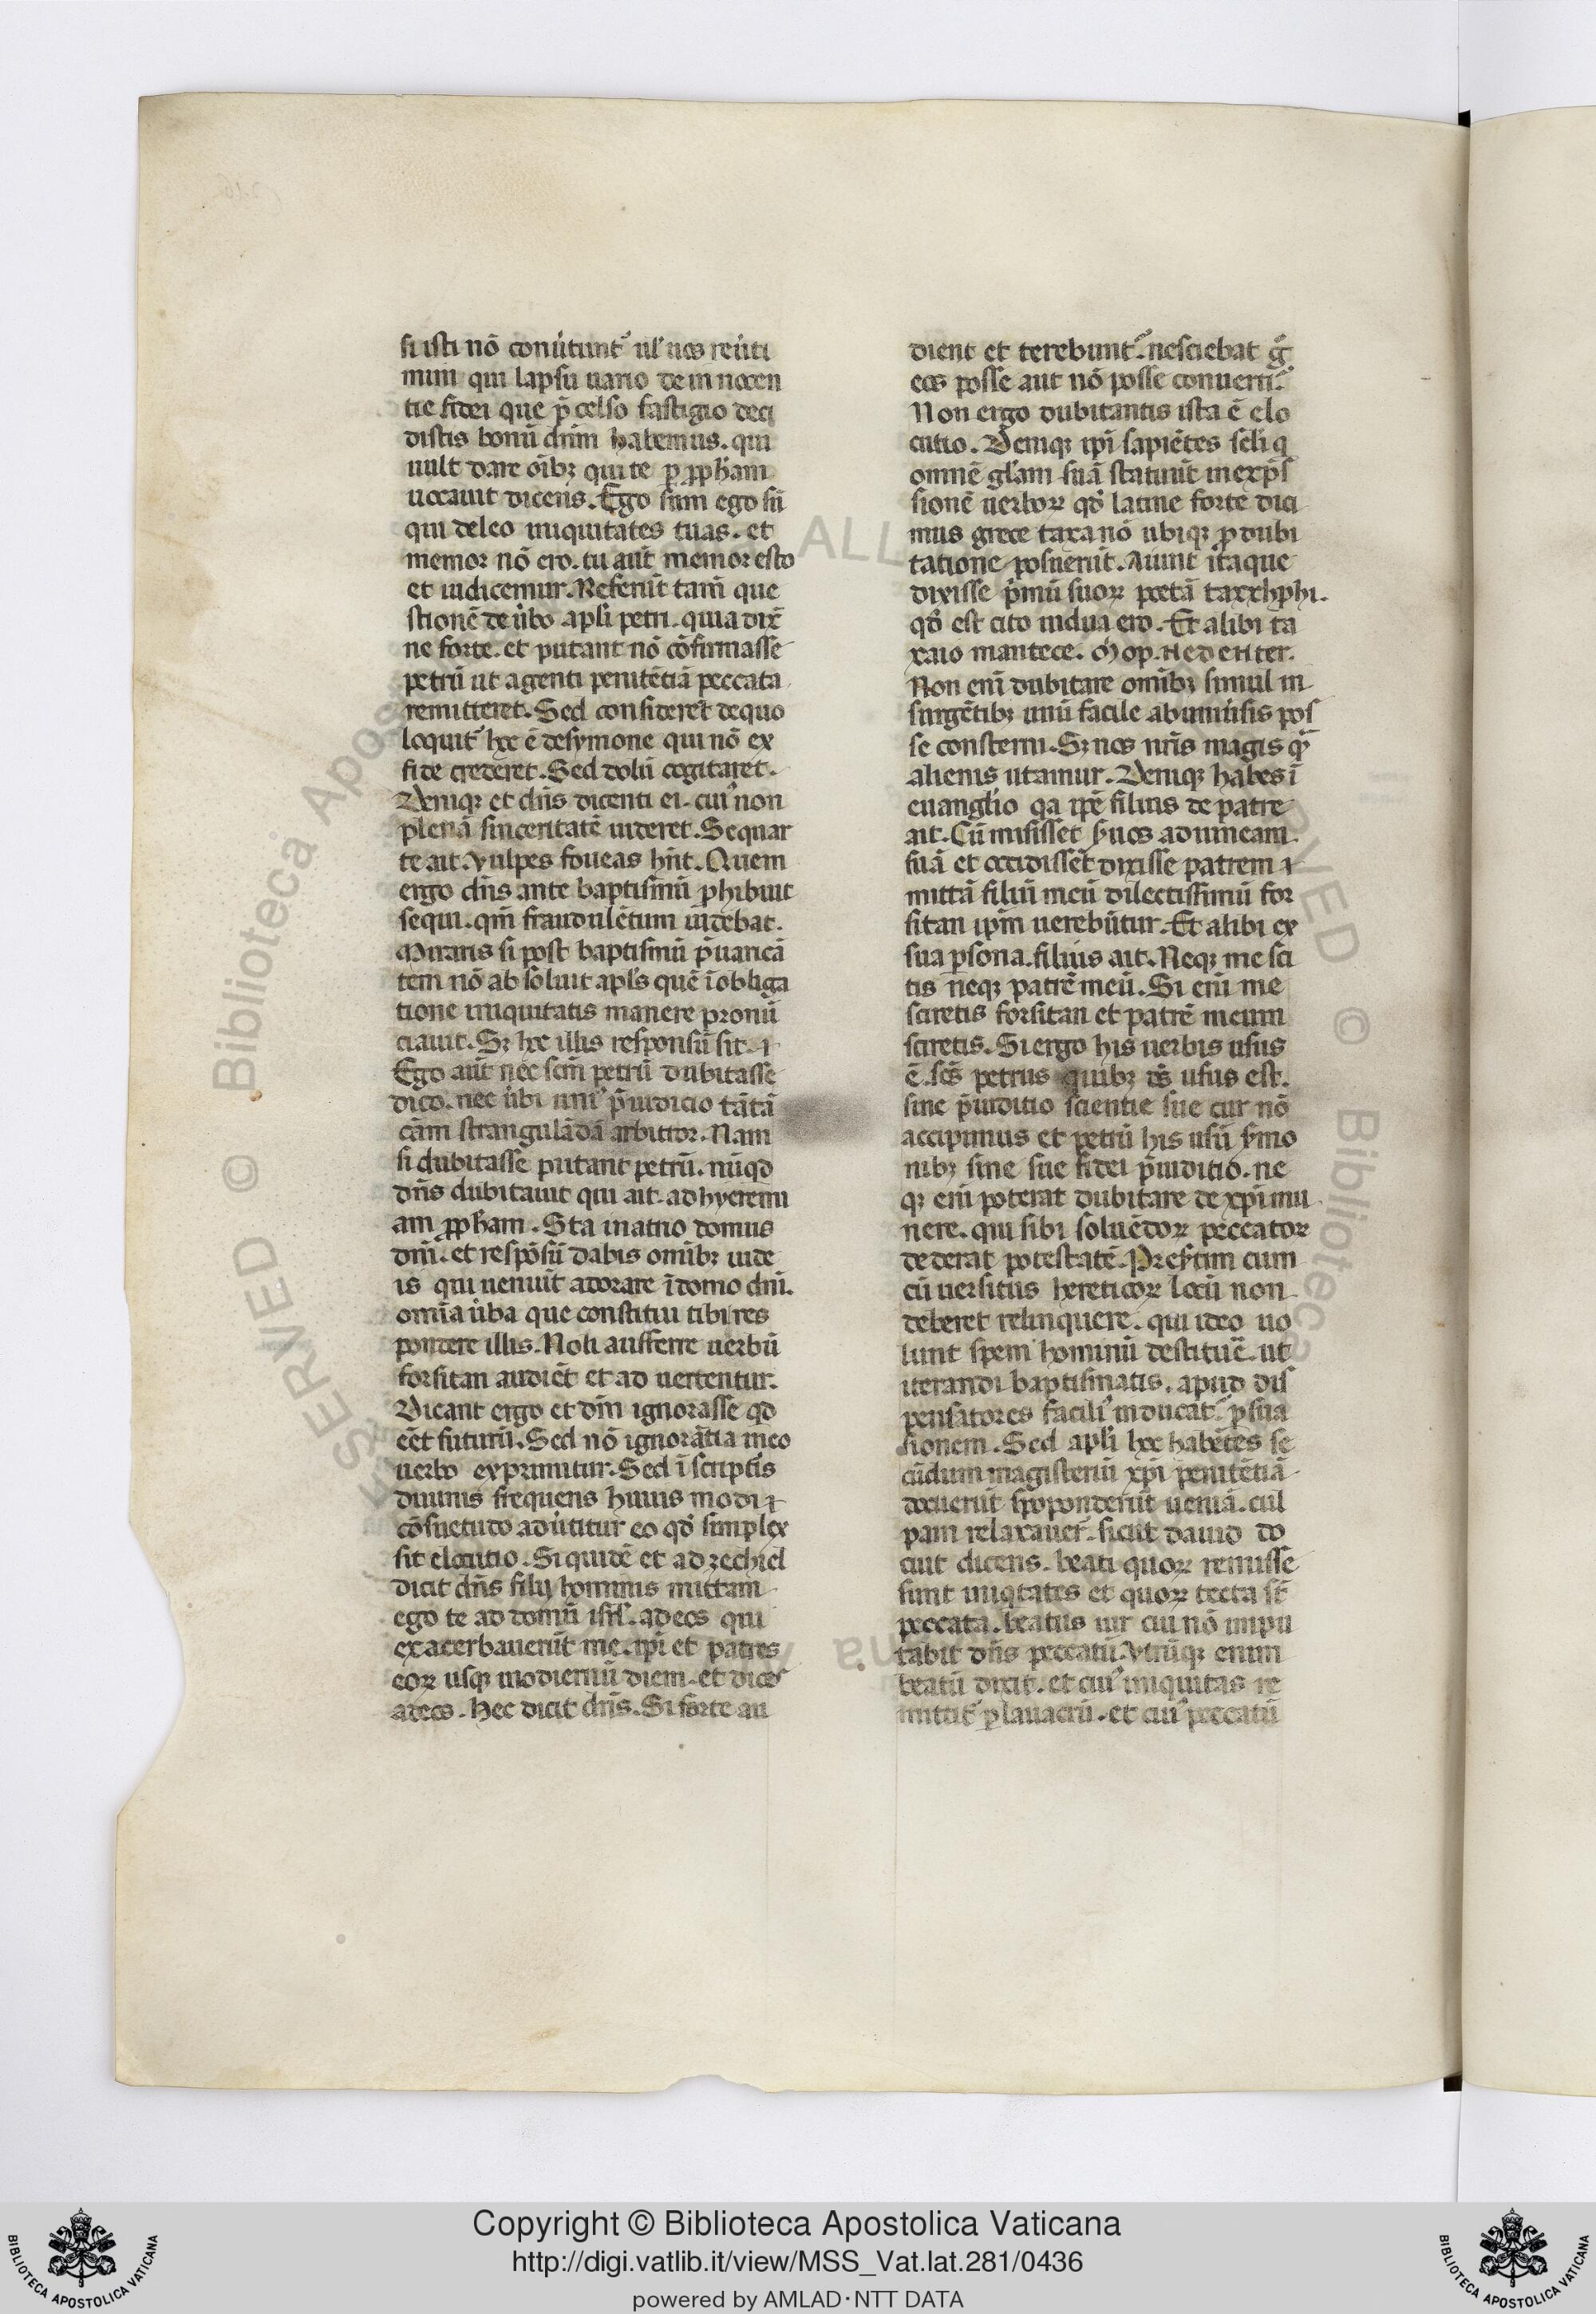 si isti nō conūtunt᷑ ul̓ uos reūti
mini qui lapsu uario de in nocen
tie fidei que p̄ celso fastigio deci
distis bonū dn̄m habemus. qui
uult dare oīb; qui te p̱ pp̄ham
uocauit dicens. Ego sum ego sū
qui deleo iniquitates tuas. et
memor nō ero. tu aūt memor esto
et iudicemur. Referūt tam̄ que
stionē de ūbo apl̄i petri. quia dix̄
ne forte. et putant nō cōfirmasse
petrū ut agenti penitētiā peccata
remitteret. Sed considerēt de quo
loquit᷑ hoc ē de symone qui nō ex
fide crederet. Sed dolū cogitaret.
Deniq; et dn̄s dicenti ei. cui᷒ non
plenā sinceritatē uideret. Sequar
te ait. Vulpes foueas hn̄t. Quem
ergo dn̄s ante baptismū ꝓhibuit
sequi. qm̄ fraudulētum uidebat.
Miraris si post baptismū p̄uaricā
tem nō ab soluit apl̄s quē ī obliga
tione iniquitatis manere pronū
ciauit. S; hoc illis responsū sit.
Ego aūt nec scm̄ petrū dubitasse
dico. nec ūbi uni᷒ p̄iudicio tātā
cām strangulādā arbitror. Nam
si dubitasse putant petrū. nūqd
dn̄s dubitauit qui ait. ad hyeremi
am pp̄ham. Sta in atrio domus
dn̄i. et respōsū dabis omīb; iude
is qui uenūit adorare ī domo dn̄i.
omīa ūba que constitui tibi res
pondere illis. Noli aufferre uerbū
forsitan audiēt et ad uertentur.
Dicant ergo et dn̄m ignorasse qd
eēt futurū. Sed nō ignorātia in eo
uerbo exprimitur. Sed ī scriptis
diuinis frequens huius modi
cōsuetudo adūtitur eo qd̓ simplex
sit elocutio. Si quidē et ad zechiel
dicit dn̄s filij hominis mittam
ego te ad domū isrl̓. ad eos qui
exacerbauerūt me. ip̄i et patres
eoꝝ usq; in odiernū diem. et dices
ad eos. Hec dicit dn̄s. Si forte au
dient et terebunt᷑. nesciebat g̊
eos posse aut nō posse conuerti.
Non ergo dubitantis ista ē elo
cutio. Deniq; ip̄i sapiētes scl̓i q
omnē gl̓am suā statuūt in exp̄s
sionē uerboꝝ qd̓ latine forte dici
mus grece taxa nō ubiq; ꝓ dubi
tatione posuerūt. Aiunt itaque
dixisse p̄mū suoꝝ poetā taxxhphi.
qd̓ est cito uidua ero. Et alibi ta
xaio mantece.
Non enī dubitare omīb; simul in
surgētib; unū facile ab uniūsis pos
se consterni. S; nos nr̄is magis q̄
alienis utamur. Deniq; habes ī
euanglio qa ip̄e filius de patre
ait. Cū misisset s̄uos ad uineam
suā et occidissēt dixisse patrem
mittā filiū meū dilectissimū for
sitan ip̄m uerebūtur. Et alibi ex
sua ꝑsona. filius ait. Neq; me sci
tis neq; patrē meū. Si enī me
sciretis forsitan et patrē meum
sciretis. Si ergo his uerbis usus
ē. scs̄ petrus quib; ds̄ usus est.
sine p̄iuditio scientie sue cur nō
accipimus et petrū his usū s̄mo
nib; sine sue fidei p̄iuditio. ne
q; enī poterat dubitare de xp̄i mu
nere. qui sibi soluēdoꝝ peccatoꝝ
de derat potestatē. Pres̄tim cum
cū uersitius hereticoꝝ locū non
deberet relinquere. qui ideo uo
lunt spem hominū destituē. ut
iterandi baptismatis. apud dis
pensatores facili᷒ inducat᷑ ꝑsua
sionem. Sed apl̄i hoc habētes se
cūdum magisteriū xp̄i penitētiā
docuerūt spoponderūt ueniā. cul
pam relaxauer̄. sicut dauid do
cuit dicens. beati quoꝝ remisse
sunt iniqtates et quoꝝ tecta st̄
peccata. beatus uir cui nō impu
tabit dn̄s peccatū. Vtrūq; enim
beatū dicit. et cui᷒ iniquitas re
mittit᷑ ꝑ lauacrū. et cui᷒ peccatū
Copyright © Biblioteca Apostolica Vaticana
http://digi.vatlib.it/view/MSS_Vat.lat.281/0436
powered by AMLAD·NTT DATA